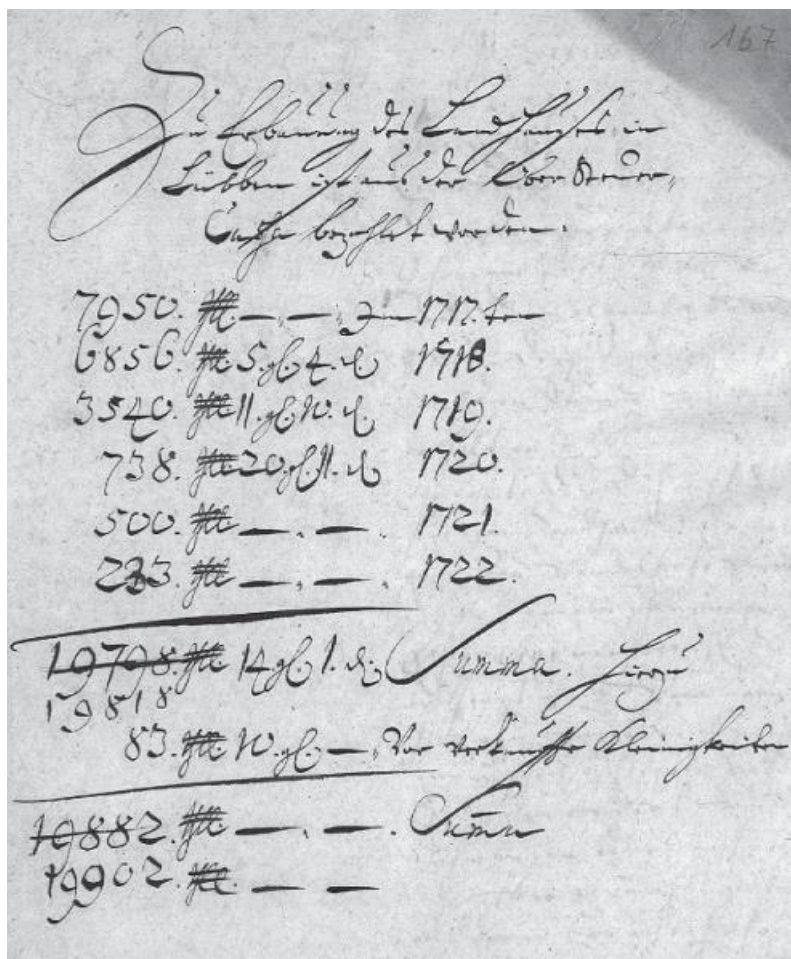 167
Zu Erbauung des Land Hauses in
Lübben ist aus der Ober Steuer,
Cassa bezahlet worden.
7950. thl. —. —. In 1717.ten
6856. thl. 5. gl. 4. d. 1718.
3540. thl. 11. gl. 10. d. 1719.
738. thl. 20. gl. 11. d. 1720.
500. thl. —. —. 1721.
233. thl. —. —. 1722.
19798. thl. 14 gl. 1. d. Summa. Hierzu
19818
83. thl. 10. gl. —. Vor Kleinigkeiten
19882. thl. —. —. Summa
19902. thl. — —